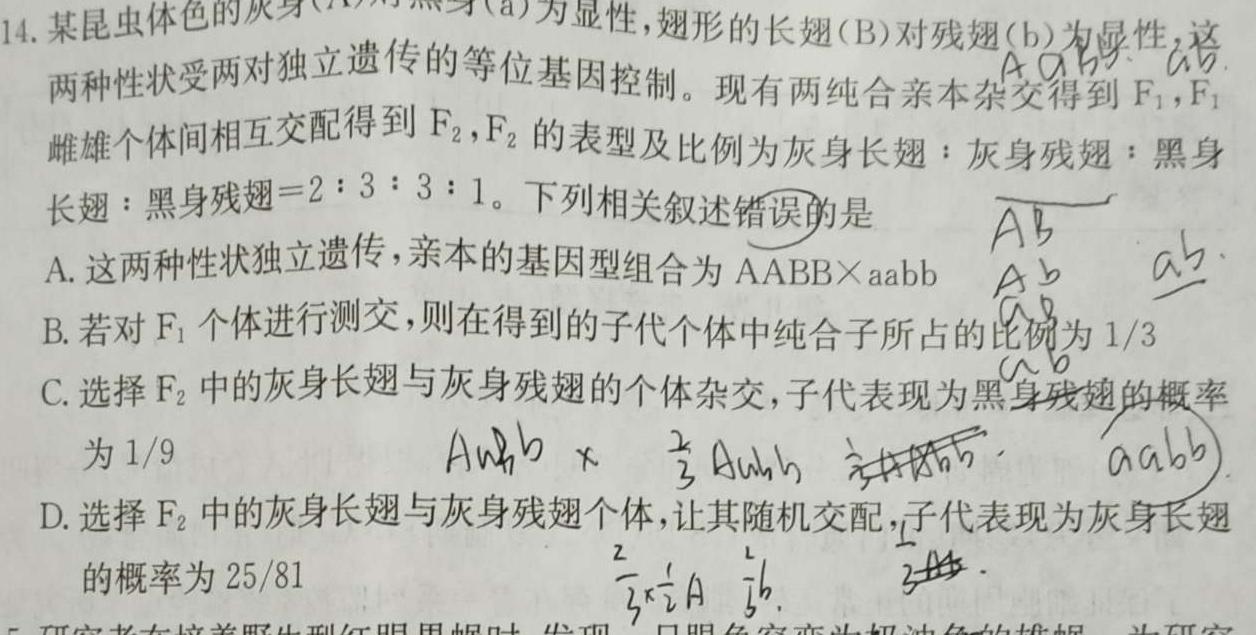 14. 某昆虫体色的灰身(A)对黑身(a)为显性,翅形的长翅(B)对残翅(b)为显性,这
AaBb. ab.
两种性状受两对独立遗传的等位基因控制。现有两纯合亲本杂交得到 F₁,F₁
雌雄个体间相互交配得到 F₂,F₂ 的表型及比例为灰身长翅∶灰身残翅∶黑身
长翅∶黑身残翅=2∶3∶3∶1。下列相关叙述错误的是
AB
A. 这两种性状独立遗传,亲本的基因型组合为 AABB×aabb
Ab ab.
aB
B. 若对 F₁ 个体进行测交,则在得到的子代个体中纯合子所占的比例为 1/3
ab
C. 选择 F₂ 中的灰身长翅与灰身残翅的个体杂交,子代表现为黑身残翅的概率
为 1/9
AaBb × 2/3 Aabb aabb
D. 选择 F₂ 中的灰身长翅与灰身残翅个体,让其随机交配,子代表现为灰身长翅
的概率为 25/81
2/3 × 1/2 A